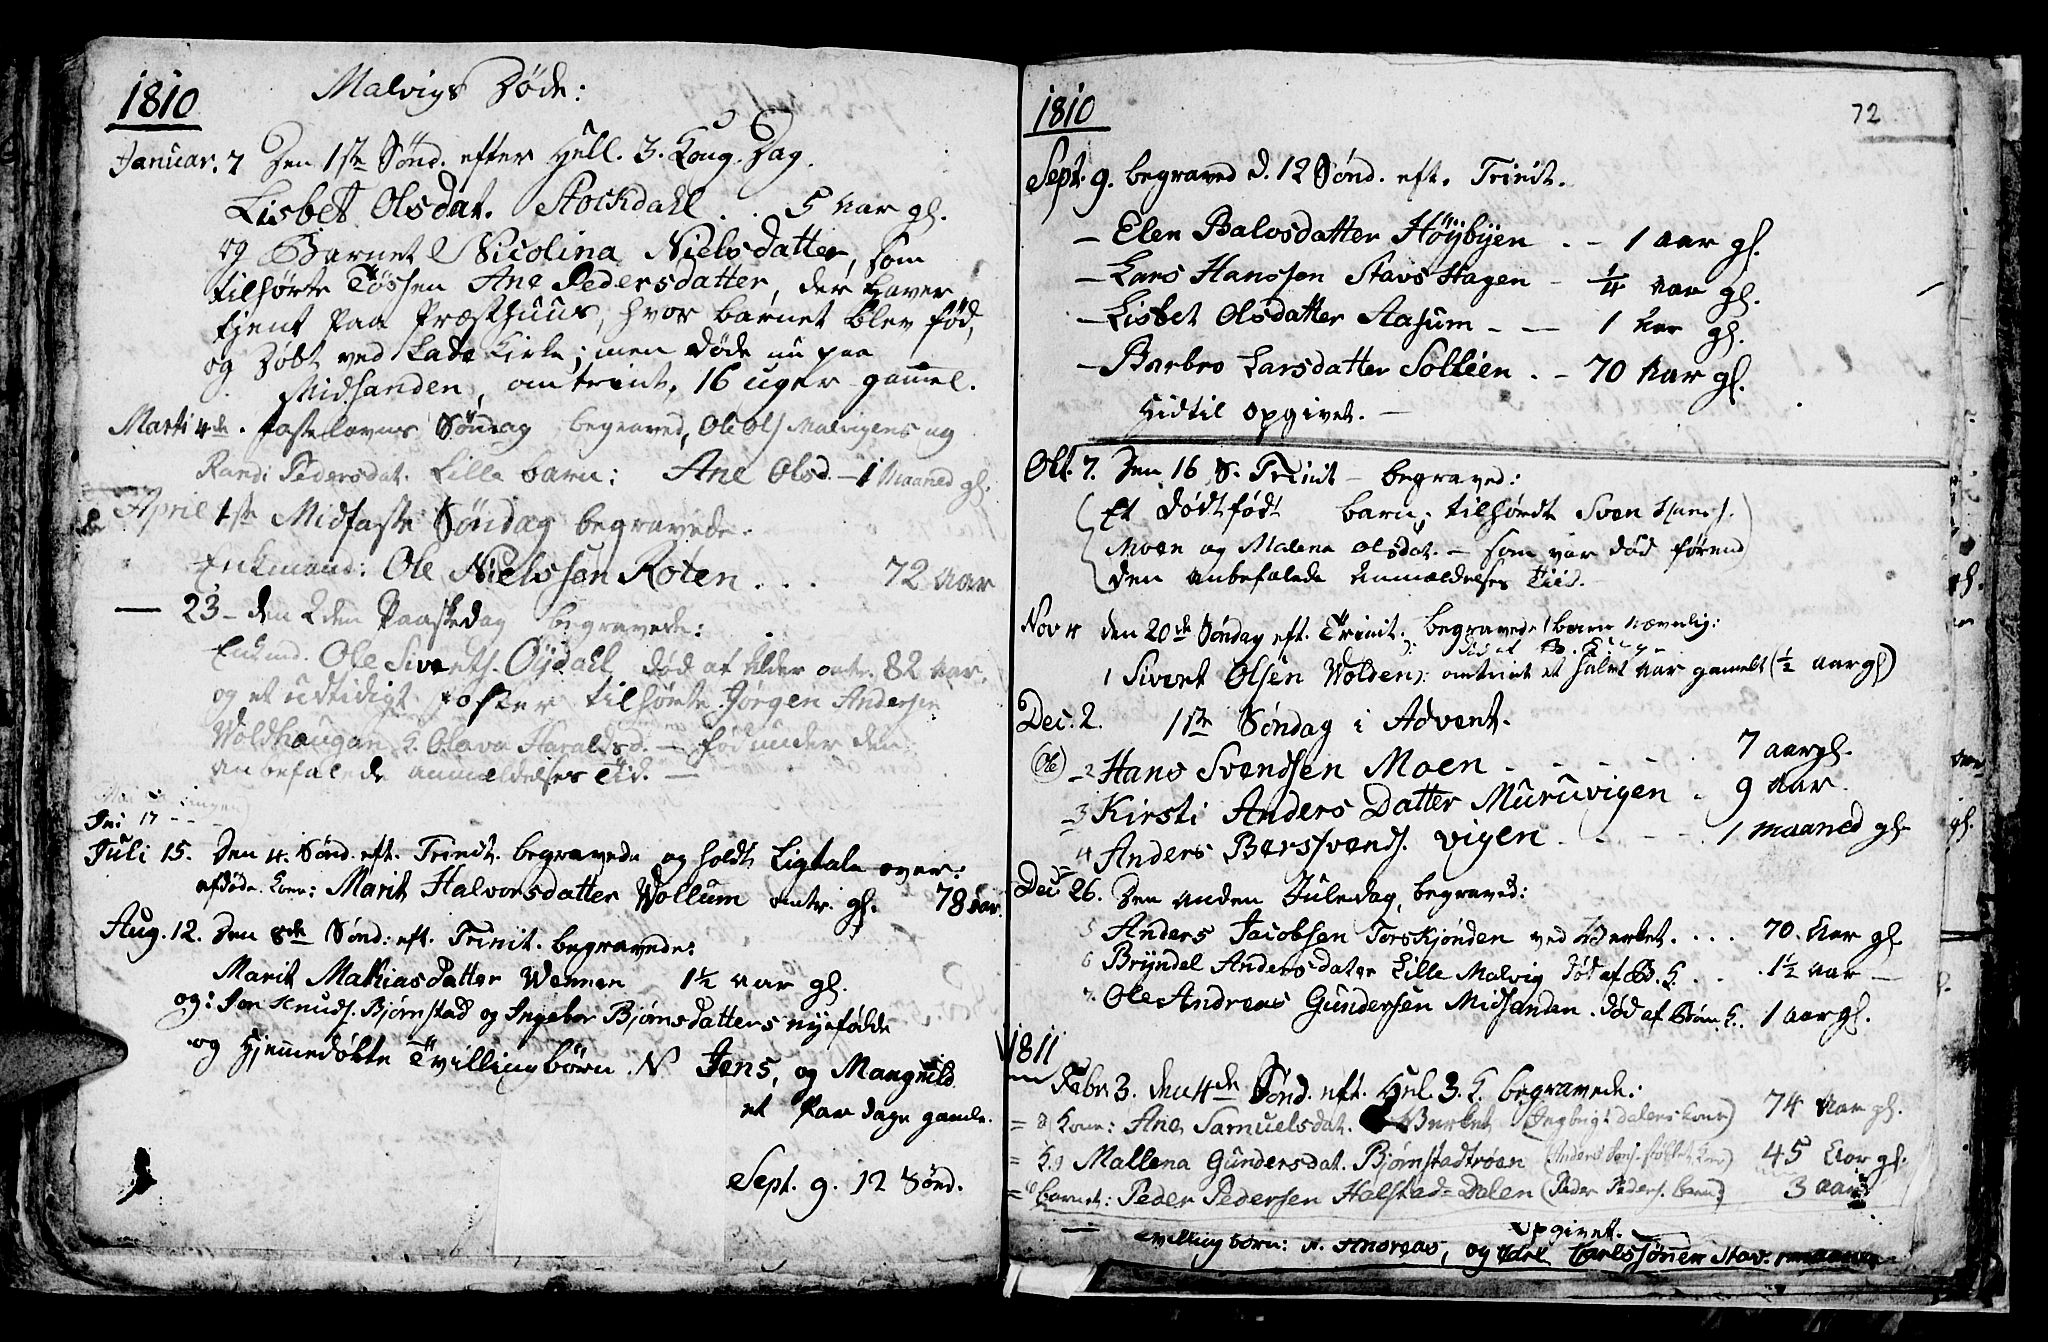 1810
Malvigs Døde:
Januar. 7 Den 1ste Sønd. efter Hell. 3. Kong. Dag.
Lisbet Olsdat. Stockdahl . . 5 Aar gl.
og Barnet Nicolina Nielsdatter, som
tilhørte Tøssen Ane Pedersdatter, der haver
tjent paa Præsthuus, hvor barnet blev fød,
og Døbt ved Lade Kirke; men døde nu paa
Midsanden, omtrint, 16 uger gammel.
Marti 4de. Fastelavns Søndag begraved, Ole Ols Malvigens og
Randi Pedersdat. Lille barn: Ane Olsd. – 1 Maaned gl.
April 1ste Midfaste Søndag begravede.
Enkmand: Ole Nielssen Røten . . . 72 Aar
— 23 – den 2den Paaskedag begravede:
Enkmd. Ole Siverts. Øysdahl død af Alder omtr. 82 Aar.
og et utidigt foster tilhørte Jørgen Andersen
Woldhaugan K. Olava Haraldsd. – fød under den
anbefalede anmældelses Tid. —
Jni 17 - - -
Juli 15. Den 4. Sønd. eft. Trinit. begravede og holdt Ligtale over:
afdøde Kone: Marit Halvorsdatter Wollum omtr. gl. 78 Aar.
Aug. 12. Den 8de Sønd: eft. Trinit. begravede:
Marit Mathiasdatter Wennen 1½ Aar gl.
og: Jon Knuds. Bjørnstad og Ingebor Bjørnsdatters nyefødde
og Hjemmedøbte Tvillingbørn N Jens, og Mangnild
et Par dage gamle.
Sept. 9. 12 Sønd.
1810
72
Sept. 9. begraved d. 12 Sønd. eft. Trinit.
– Elen Balvsdatter Høybyen . – 1 aar gl.
– Lars Hanssen Stavs Hagen – ¼ Aar gl.
– Lisbet Olsdatter Aasum – — 1 Aar gl.
– Barbro Larsdatter Solliien . – 70 Aar gl.
Hidtil opgivet. —
Okt. 7. Den 16 S. Trinit – begraved:
Et dødtfødt barn, tilhørdt Sven Hans.
Moen og Malena Olsdat. – som var død førend
den anbefalede Anmældelses Tiid.
Nov 4 den 20de Søndag eft. Trinit. begravede 1 barn nævnlig:
1 Sivert Olsen Wolden: omtrint et halvt Aar gamelt (½ aar gl)
Dec. 2. 1ste Søndag i Advent.
(Ole) – 2 Hans Svendsen Moen - - - - 7 aar gl.
3 Kirsti Anders Datter Muruvigen . 9 Aar.
4 Anders Berssvends. Vigen . . - - 1 maaned gl.
Dec 26. Den anden Juledag, begraved:
5 Anders Jacobsen Torskjønden ved Werket. . . . 70. Aar gl.
6 Bryndel Andersdater Lille Malvig død af B. K. . . . 1½ Aar —
7. Ole Andreas Gundersen Midsanden. død af Børn K.. 1 aar gl.
1811
Febr. 3. den 4de Sønd. eft. Hel. 3. K. begravede:
= 8 Kone: Ane Samuelsdat. Werket (Ingbrigt Dalers kone) 74 Aar gl.
= K. 9 Mallena Gundersdat. Bjørnstadtrøen 45 Aar gl.
= barnet: Peder Pedersen Halstad=Dalen (Peder Peders. barn) 3 aar
Opgivet.
— Tvillingbørn: N. Andreas, og Carlssønner Stav.